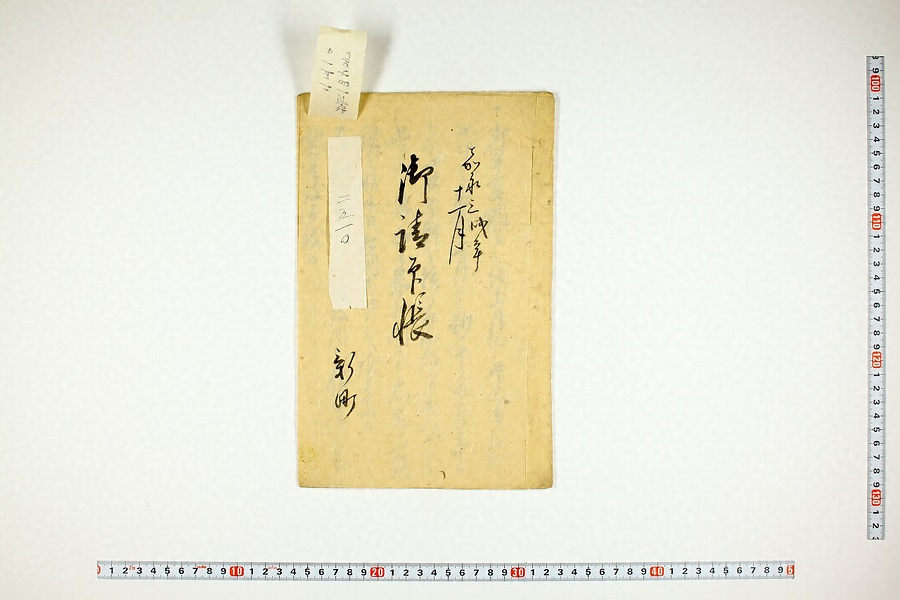 嘉永三戌年
十一月
御請印帳
二五一〇
新町
1 2 3 4 5 6 7 8 9 10 1 2 3 4 5 6 7 8 9 20 1 2 3 4 5 6 7 8 9 30 1 2 3 4 5 6 7 8 9 40 1 2 3 4 5 6 7 8 9 5
9 100 1 2 3 4 5 6 7 8 9 110 1 2 3 4 5 6 7 8 9 120 1 2 3 4 5 6 7 8 9 130 1 2